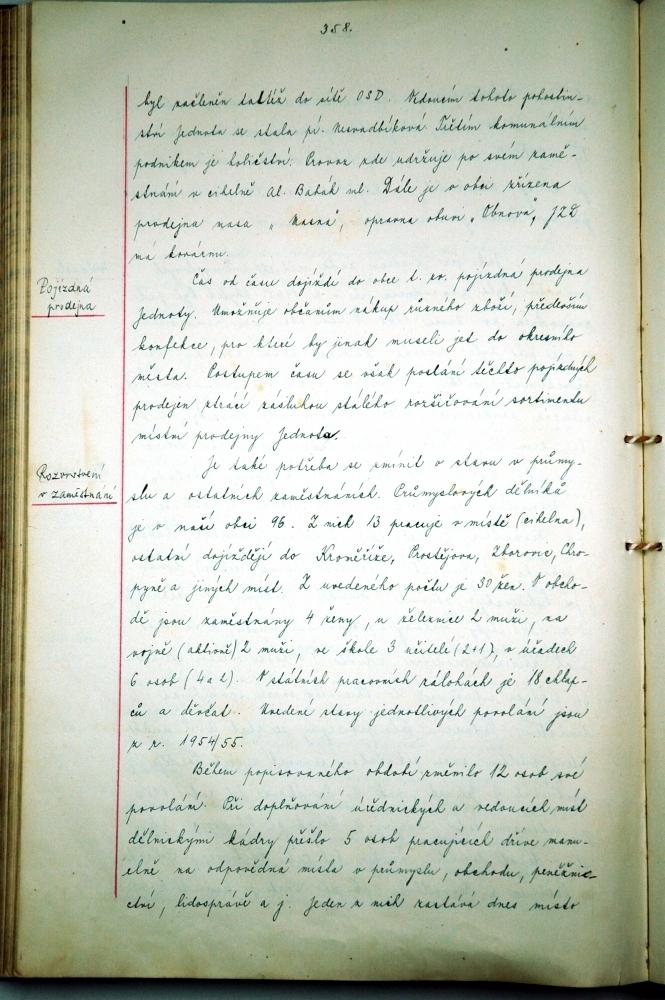 358.
byl začleněn taktéž do sítě OSD. Vedoucím tohoto pohostin-
ství Jednota se stala pí. Nesvadbíková. Třetím komunálním
podnikem je holičství. Provoz zde udržuje po svém zamě-
stnání v cihelně Al. Babák ml. Dále je v obci zřízena
prodejna masa „Masna", opravna obuvi „Obnova", JZD
má kovárnu.
Pojízdná
prodejna
Čas od času dojíždí do obce t. zv. pojízdná prodejna
Jednoty. Umožňuje občanům nákup různého zboží, především
konfekce, pro které by jinak museli jet do okresního
města. Postupem času se však poslání těchto pojízdných
prodejen ztrácí zásluhou stálého rozšiřování sortimentu
místní prodejny Jednota.
Rozvrstvení
v zaměstnání
Je také potřeba se zmínit o stavu v průmy-
slu a ostatních zaměstnáních. Průmyslových dělníků
je v naší obci 96. Z nich 13 pracuje v místě (cihelna),
ostatní dojíždějí do Kroměříže, Prostějova, Zborovic, Chro-
pyně a jiných míst. Z uvedeného počtu je 30 žen. V obcho-
dě jsou zaměstnány 4 ženy, u železnice 2 muži, na
vojně (aktivně) 2 muži, ve škole 3 učitelé (2+1), v úřadech
6 osob (4 a 2). V státních pracovních zálohách je 18 chlap-
ců a děvčat. Uvedené stavy jednotlivých povolání jsou
z r. 1954/55.
Během popisovaného období změnilo 12 osob své
povolání. Při doplňování úřednických a vedoucích míst
dělnickými kádry přešlo 5 osob pracujících dříve manu-
elně na odpovědná místa v průmyslu, obchodu, peněžnic-
ctví, lidosprávě a j. Jeden z nich zastává dnes místo